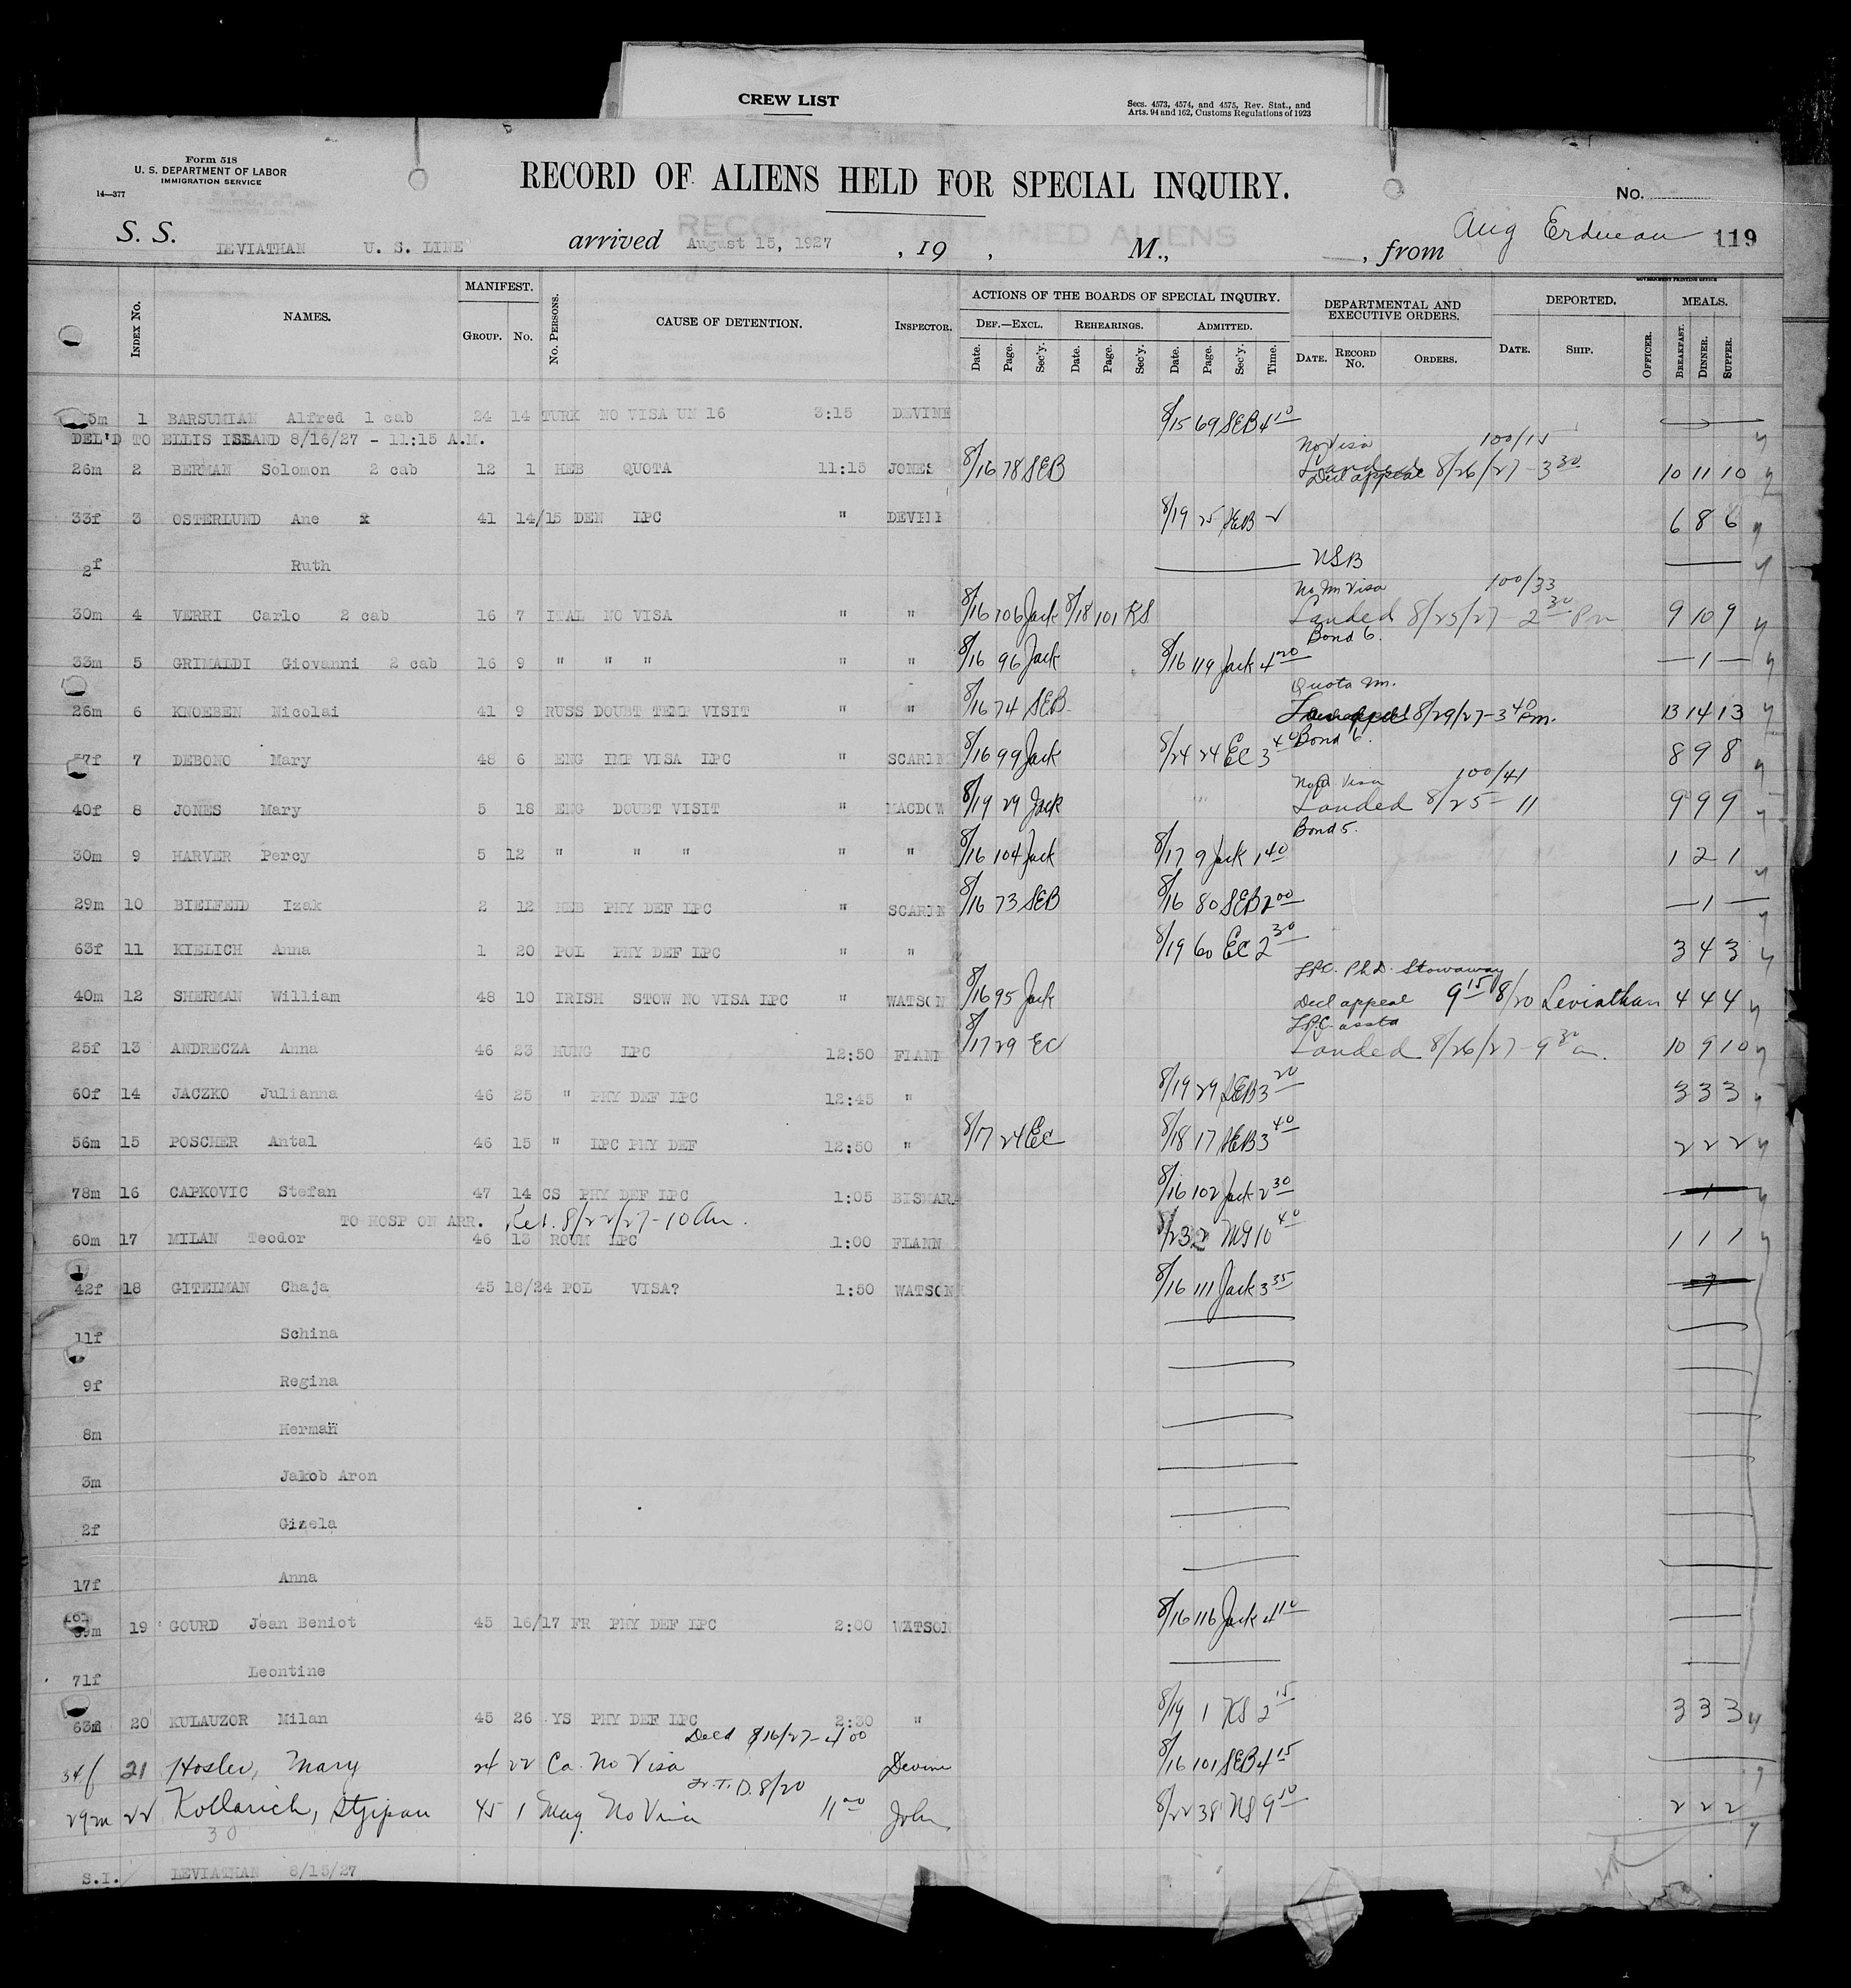 CREW LIST
Secs. 4573, 4574, and 4575, Rev. Stat., and
Arts. 94 and 162, Customs Regulations of 1923
Form 518
U. S. DEPARTMENT OF LABOR
IMMIGRATION SERVICE
14—377
RECORD OF ALIENS HELD FOR SPECIAL INQUIRY.
No.
S. S. LEVIATHAN U. S. LINE arrived August 15, 1927, 19 , M., , from Aug 119
GOVERNMENT PRINTING OFFICE
Index No. NAMES. MANIFEST. GROUP. NO. No. PERSONS. CAUSE OF DETENTION. INSPECTOR. ACTIONS OF THE BOARDS OF SPECIAL INQUIRY. DEF.—EXCL. REHEARINGS. ADMITTED. DEPARTMENTAL AND EXECUTIVE ORDERS. DEPORTED. MEALS.
Date. Page. Sec'y. Date. Page. Sec'y. Date. Page. Sec'y. Time. DATE. RECORD No. ORDERS. DATE. SHIP. OFFICER. BREAKFAST. DINNER. SUPPER.
5m 1 BARSUMIAN Alfred 1 cab 24 14 TURK NO VISA UN 16 3:15 DEVINE 8/15 69 SEB 4 10
DEL'D TO ELLIS ISLAND 8/16/27 - 11:15 A.M.
No Visa 100/15
26m 2 BERMAN Solomon 2 cab 12 1 HEB QUOTA 11:15 JONES 8/16 78 SEB Landed 8/26/27-3 30 10 11 10
Decl appeal
33f 3 OSTERLUND Ane x 41 14/15 DEN LPC " DEVINE 8/19 25 SEB 6 8 6
2f Ruth USB
No Im Visa 100/33
30m 4 VERRI Carlo 2 cab 16 7 ITAL NO VISA " " 8/16 106 Jack 8/18 101 KS Landed 8/25/27-2 30 Pm 9 10 9
Bond 6.
33m 5 GRIMALDI Giovanni 2 cab 16 9 " " " " " 8/16 96 Jack 8/16 119 Jack 4 20 — 1 —
Quota Im.
26m 6 KNOEBEN Nicolai 41 9 RUSS DOUBT TEMP VISIT " " 8/16 74 SEB 8/29/27-3 40 Pm. 13 14 13
Bond 6.
57f 7 DEBONO Mary 48 6 ENG IMP VISA LPC " SCARIN 8/16 99 Jack 8/24 24 EC 3 40 8 9 8
Visa 100/41
40f 8 JONES Mary 5 18 ENG DOUBT VISIT " MACDOW 8/19 29 Jack Landed 8/25-11 9 9 9
Bond 5.
30m 9 HARVER Percy 5 12 " " " " " 8/16 104 Jack 8/17 9 Jack 1 40 1 2 1
29m 10 BIELFELD Izak 2 12 HEB PHY DEF LPC " SCARIN 8/16 73 SEB 8/16 80 SEB 2 00 — 1 —
63f 11 KIELICH Anna 1 20 POL PHY DEF LPC " " 8/19 60 EC 2 30 3 4 3
LPC. Ph.D. Stowaway
40m 12 SHERMAN William 48 10 IRISH STOW NO VISA LPC " WATSON 8/16 95 Jack Decl appeal 9 15 8/20 Leviathan 4 4 4
LPC. asstd
25f 13 ANDRECZA Anna 46 23 HUNG LPC 12:50 FLANN 8/17 29 EC Landed 8/26/27-9 30 am. 10 9 10
60f 14 JACZKO Julianna 46 25 " PHY DEF LPC 12:45 " 8/19 29 SEB 3 20 3 3 3
56m 15 POSCHER Antal 46 15 " LPC PHY DEF 12:50 " 8/17 24 EC 8/18 17 SEB 3 40 2 2 2
78m 16 CAPKOVIC Stefan 47 14 CS PHY DEF LPC 1:05 BISMARA 8/16 102 Jack 2 30
TO HOSP ON ARR. Rel. 8/22/27-10 Am.
60m 17 MILAN Teodor 46 13 ROUM LPC 1:00 FLANN 8/23 2 MG 10 40 1 1 1
42f 18 GITELMAN Chaja 45 18/24 POL VISA? 1:50 WATSON 8/16 111 Jack 3 35
11f Schina
9f Regina
8m Herman
3m Jakob Aron
2f Gizela
17f Anna
19 GOURD Jean Beniot 45 16/17 FR PHY DEF LPC 2:00 WATSON 8/16 116 Jack 4 10
71f Leontine
63m 20 KULAUZOR Milan 45 26 YS PHY DEF LPC 2:30 " 8/19 1 KS 2 15 3 3 3
Decd 8/16/27-4 00
34f 21 Hosler, Mary 24 22 Ca. No Visa Devine 8/16 101 SEB 4 15
Tr. T. D. 8/20
29m 22 Kollarich, Stjipan 45 1 Mag No Visa 11 00 John 8/22 38 NS 9 50 2 2 2
30
S.I. LEVIATHAN 8/15/27